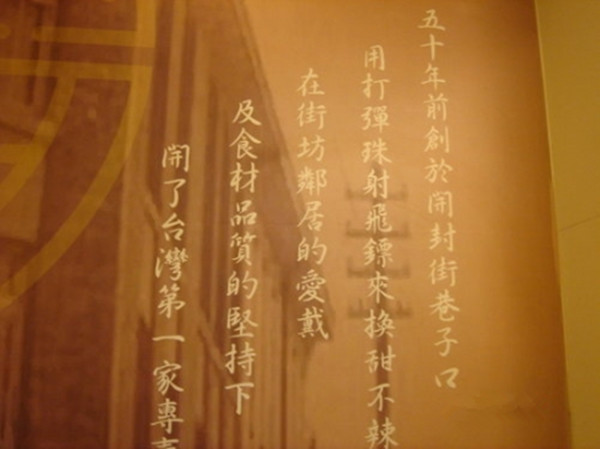 五十年前創於開封街巷子口
用打彈珠射飛鏢來換甜不辣
在街坊鄰居的愛戴
及食材品質的堅持下
開了台灣第一家專